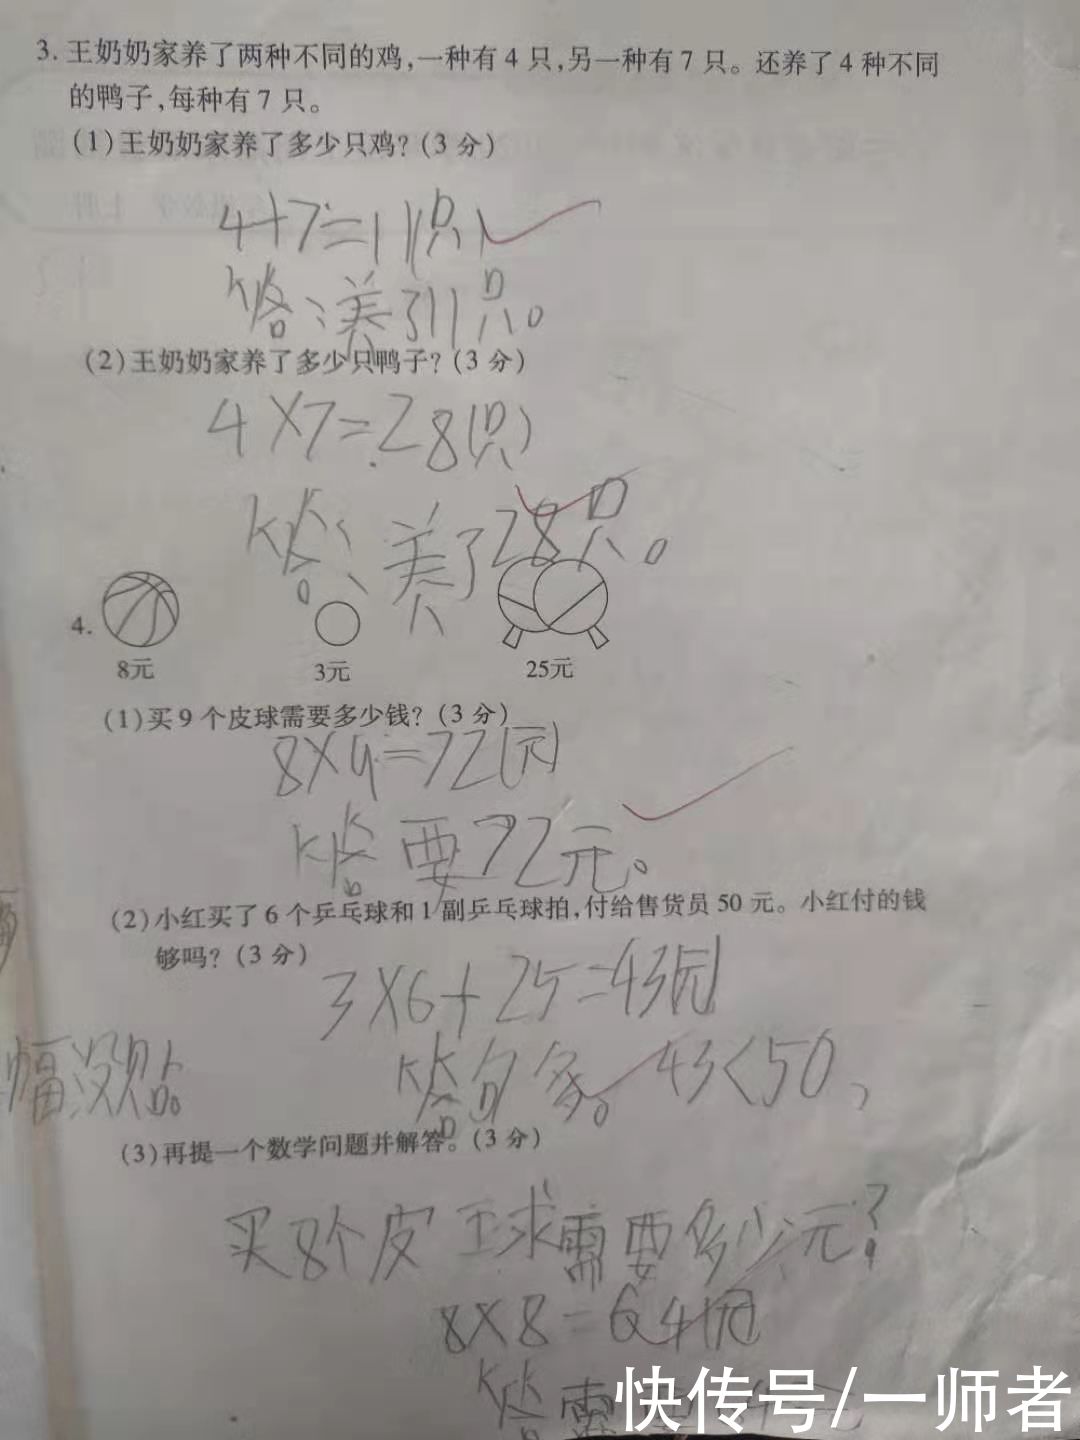 3. 王奶奶家养了两种不同的鸡,一种有4只,另一种有7只。还养了4种不同
的鸭子,每种有7只。
(1)王奶奶家养了多少只鸡?(3分)
4+7=11(只)
答:养了11只。
(2)王奶奶家养了多少只鸭子?(3分)
4×7=28(只)
答:养了28只。
4.
8元 3元 25元
(1)买9个皮球需要多少钱?(3分)
8×9=72(元)
答要72元。
(2)小红买了6个乒乓球和1副乒乓球拍,付给售货员50元。小红付的钱
够吗?(3分)
3×6+25=43(元)
答够。43<50,
(3)再提一个数学问题并解答。(3分)
买8个皮球需要多少元?
8×8=64(元)
答需
快传号/一师者